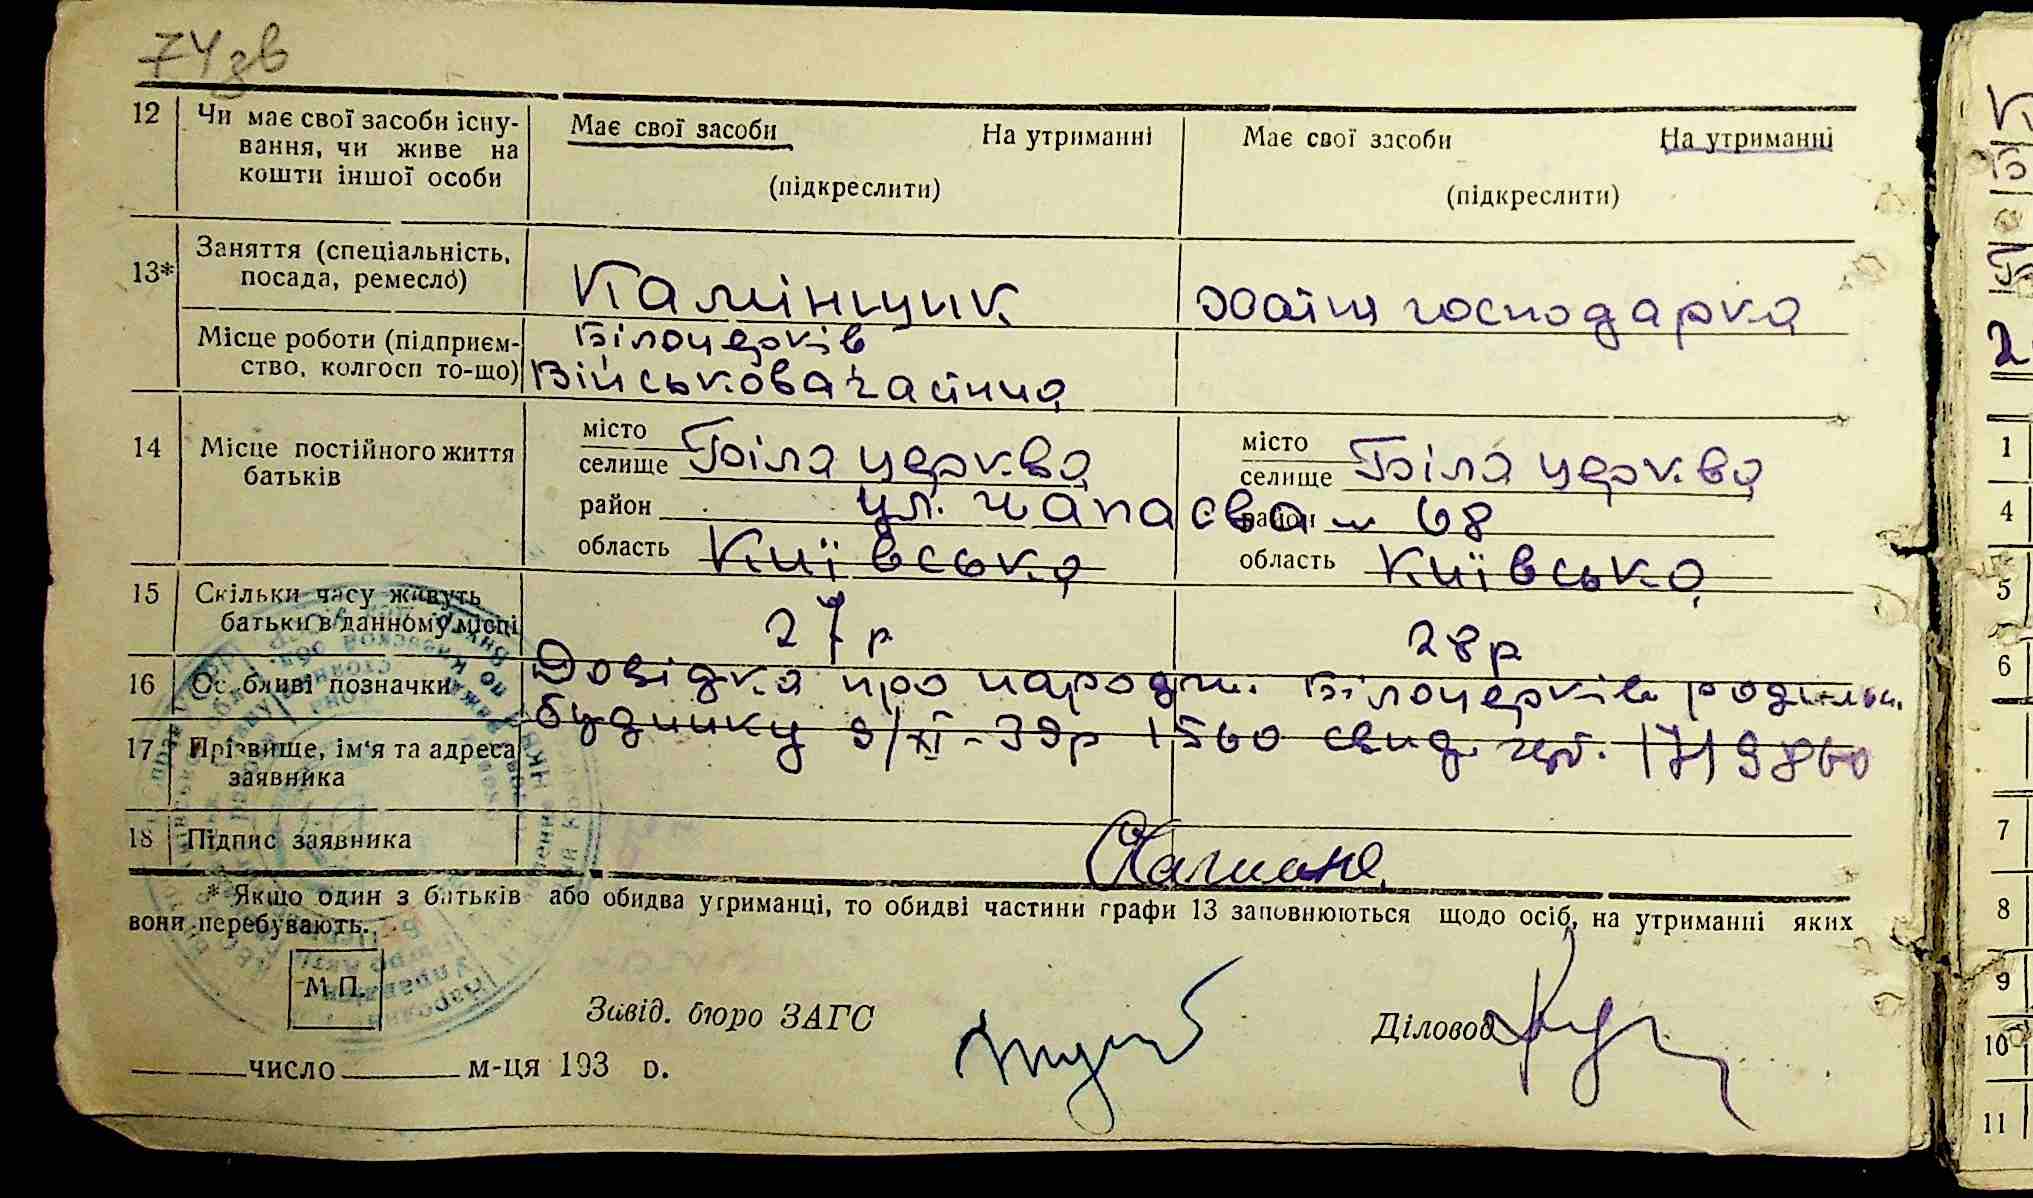 74зв
12 Чи має свої засоби існу- Має свої засоби На утриманні Має свої засоби На утриманні
вання, чи живе на
кошти іншої особи (підкреслити) (підкреслити)
13* Заняття (спеціальність,
посада, ремесло) Камінщик хатня господарка
Місце роботи (підприєм- Білоцерків
ство, колгосп то-що) Військова чайна
14 Місце постійного життя місто місто
батьків селище Біла церква селище Біла церква
район ул. Чапаєва № 68 район
область Київська область Київська
15 Скільки часу живуть
батьки в данному місці 27 р 28 р
16 Особливі позначки Довідка про народж. Білоцерків родильн.
будинку 9/XI - 39р 1560 свид. чер. 1719860
17 Прізвище, ім'я та адреса
заявника
18 Підпис заявника
* Якщо один з батьків або обидва утриманці, то обидві частини графи 13 заповнюються щодо осіб, на утриманні яких
вони перебувають.
М. П.
Завід. бюро ЗАГС Діловод
число м-ця 193 р.
1
4
5
6
7
8
9
10
11